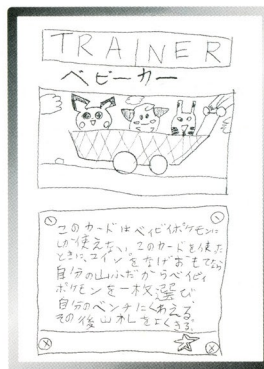 TRAINER
ベビーカー
このカードはベイビィポケモンに
しか使えない。このカードを使った
ときに、コインをなげおもてなら
自分の山ふだからベイビィ
ポケモンを一枚選び
自分のベンチにくわえる。
その後山札をよくきる。